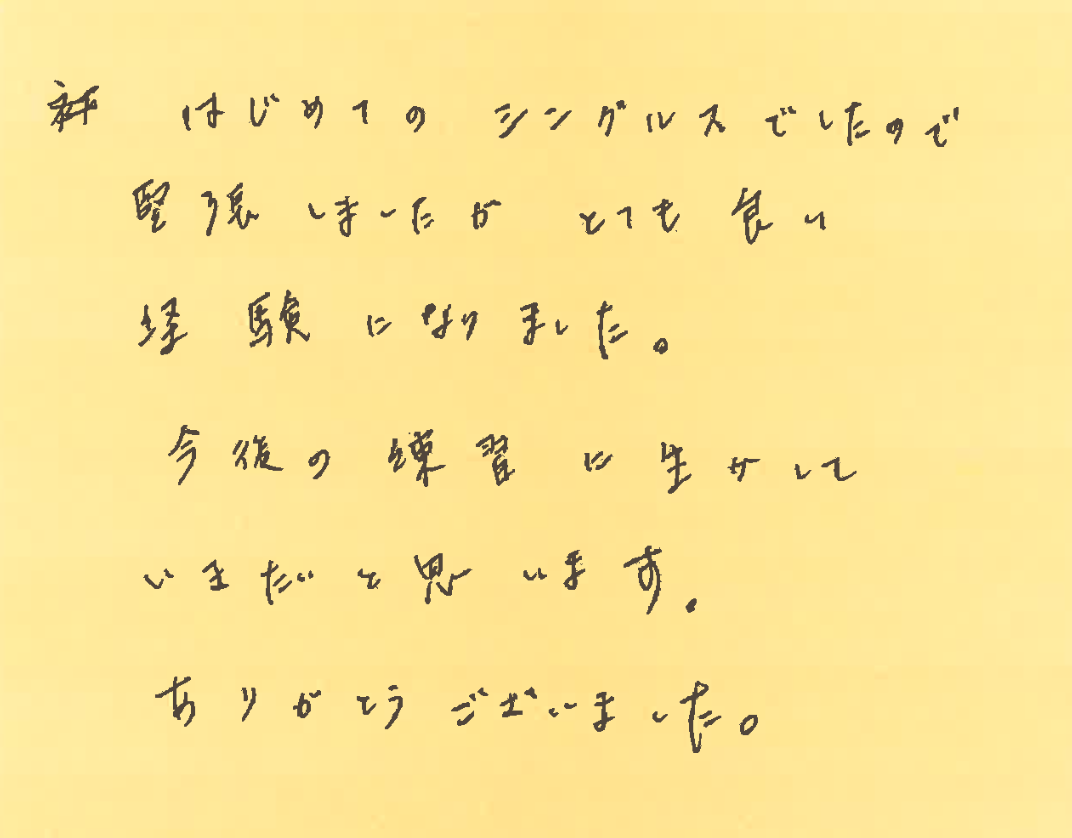 はじめての シングルスでしたので
緊張しましたが とても良い
経験になりました。
今後の練習に生かして
いまだいと思います。
ありがとうございました。